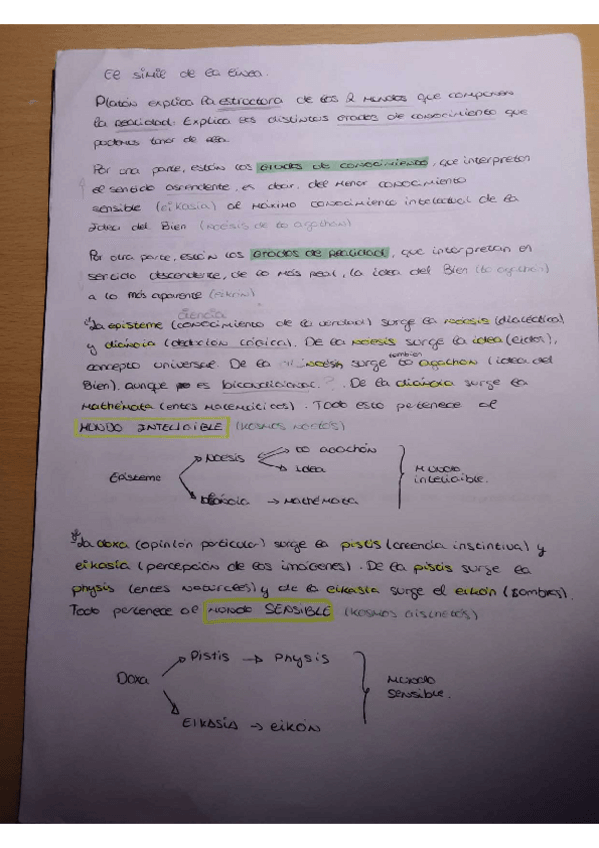 El simil de la linea.
Platón explica la estructura de los 2 mundos que componen
la realidad. Explica los distintos grados de conocimiento que
podemos tener de ella.
Por una parte, están los grados de conocimiento, que interpretan
el sentido ascendente, es decir, del menor conocimiento
sensible (eikasia) al máximo conocimiento intelectual de la
Idea del Bien (noésis de to agathon)
Por otra parte, están los grados de realidad, que interpretan el
sentido descendente, de lo más real, la idea del Bien (to agathón)
a lo más aparente (eikón).
ciencia
La episteme (conocimiento de la verdad) surge la noesis (dialéctica)
y diánoia (deducción lógica). De la noesis surge la idea (eidos),
concepto universal. De la noesis surge también to agathon (idea del
Bien), aunque no es bicondicional. De la diánoia surge la
mathémata (entes matemáticos). Todo esto pertenece al
MUNDO INTELIGIBLE (KOSMOS NOETOS)
Episteme
Noesis
to agathón
idea
Diánoia → Mathémata
Mundo
inteligible.
La doxa (opinión particular) surge la pistis (creencia instintiva) y
eikasía (percepción de las imágenes). De la pistis surge la
physis (entes naturales) y de la eikasía surge el eikón (sombras).
Todo pertenece al MUNDO SENSIBLE (KOSMOS AISTHETÓS)
Doxa
Pistis → Physis
EIKASÍA → eikón
Mundo
sensible.